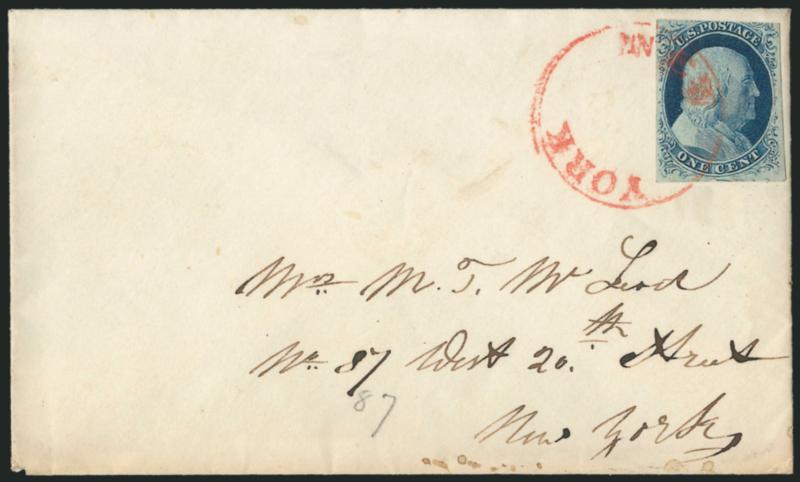 U.S. POSTAGE
ONE CENT
YORK
Mrs M. T. McLeod
No. 87 West 20.th Street
87
New York